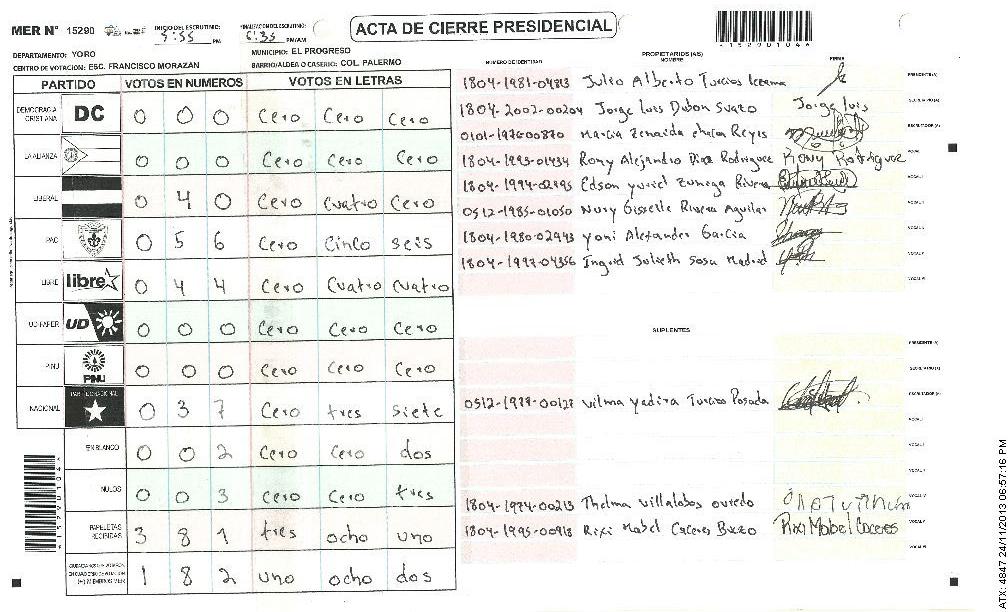 MER N° 15290
INICIO DEL ESCRUTINIO: 5:55 PM
FINALIZACION DEL ESCRUTINIO: 6:35 PM/AM
ACTA DE CIERRE PRESIDENCIAL
*15290104*
DEPARTAMENTO: YORO
MUNICIPIO: EL PROGRESO
CENTRO DE VOTACION: ESC. FRANCISCO MORAZAN
BARRIO/ALDEA O CASERIO: COL. PALERMO
PARTIDO VOTOS EN NUMEROS VOTOS EN LETRAS
DEMOCRACIA CRISTIANA DC 0 0 0 Cero Cero Cero
LA ALIANZA 0 0 0 Cero Cero Cero
LIBERAL 0 4 0 Cero Cuatro Cero
PAC 0 5 6 Cero Cinco seis
LIBRE libre 0 4 4 Cero Cuatro Cuatro
UD-FAPER UD 0 0 0 Cero Cero Cero
PINU PINU 0 0 0 Cero Cero Cero
NACIONAL PARTIDO NACIONAL 0 3 7 Cero tres siete
EN BLANCO 0 0 2 Cero Cero dos
NULOS 0 0 3 Cero Cero tres
PAPELETAS RECIBIDAS 3 8 1 tres ocho uno
(+) MIEMBROS MER 1 8 2 uno ocho dos
PROPIETARIOS (AS)
NUMERO DE IDENTIDAD NOMBRE FIRMA
Julio Alberto Turcios PRESIDENTE (A)
1804-2002-00204 Jorge Luis Dubon Suazo Jorge luis SECRETARIO (A)
Marcia Zenaida chacon Reyes ESCRUTADOR (A)
1804-1993-01434 Rony Alejandro Diaz Rodriguez Rony Rodriguez VOCAL I
Edson yuriel Zuniga Rivera VOCAL II
0512-1985-01050 Nury Gisselle Rivera Aguilar VOCAL III
1804-1980-02943 yoni Alexander Garcia VOCAL IV
1804-1997-04356 Ingrid Julieth Sosa Madrid VOCAL V
VOCAL VI
SUPLENTES
PRESIDENTE (A)
SECRETARIO (A)
Vilma yadira Turcios Posada ESCRUTADOR (A)
VOCAL I
VOCAL II
VOCAL III
VOCAL IV
1804-1974-00213 Thelma Villalobos oviedo
Rixi Mabel Caceres Rixi Mabel Caceres VOCAL V
VOCAL VI
ATX: 4847 24/11/2013 06:57:16 PM